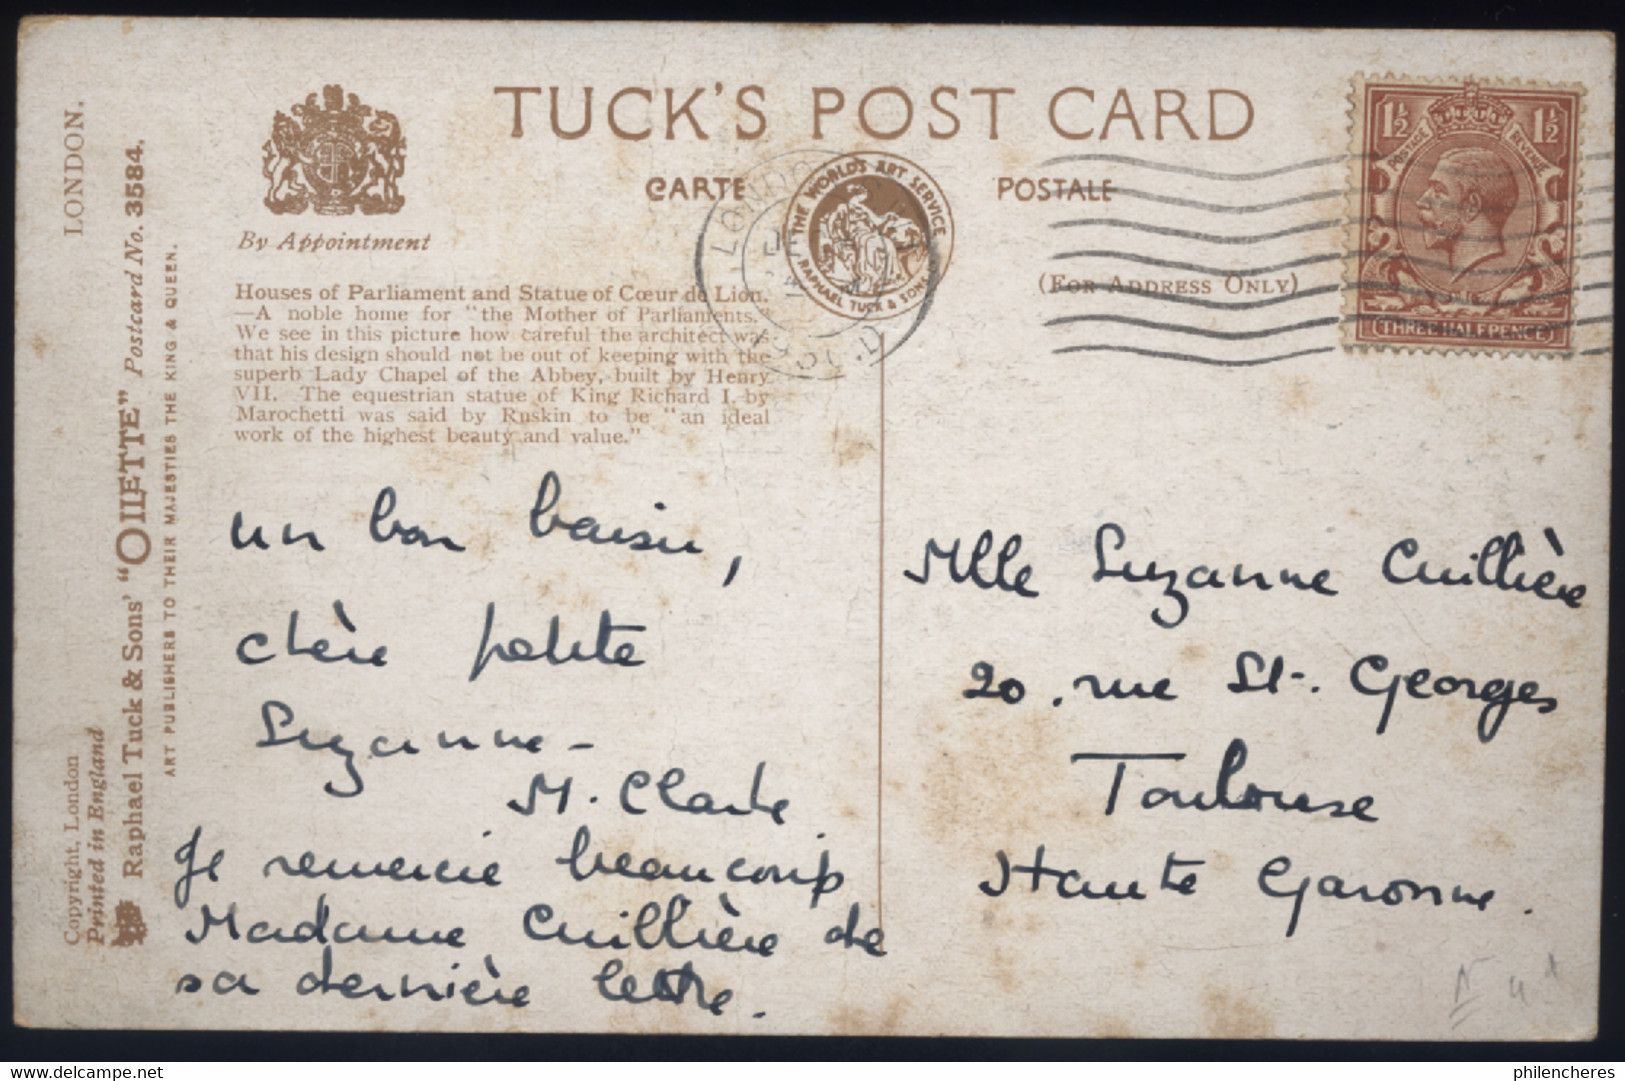 TUCK'S POST CARD
CARTE POSTALE
THE WORLD'S ART SERVICE
RAPHAEL TUCK & SONS
LONDON
(FOR ADDRESS ONLY)
1½ 1½
POSTAGE REVENUE
THREE HALFPENCE
By Appointment
Houses of Parliament and Statue of Cœur de Lion.
—A noble home for "the Mother of Parliaments."
We see in this picture how careful the architect was
that his design should not be out of keeping with the
superb Lady Chapel of the Abbey, built by Henry
VII. The equestrian statue of King Richard I. by
Marochetti was said by Ruskin to be "an ideal
work of the highest beauty and value."
LONDON.
Raphael Tuck & Sons' "OILETTE" Postcard No. 3584.
ART PUBLISHERS TO THEIR MAJESTIES THE KING & QUEEN.
Copyright, London
Printed in England
un bon baiser,
chère petite
Suzanne -
M. Clarke.
Je remercie beaucoup
Madame Cuillière de
sa dernière lettre.
Mlle Suzanne Cuillière
20, rue St-. Georges
Toulouse
Haute Garonne.
https://www.delcampe.net
philencheres